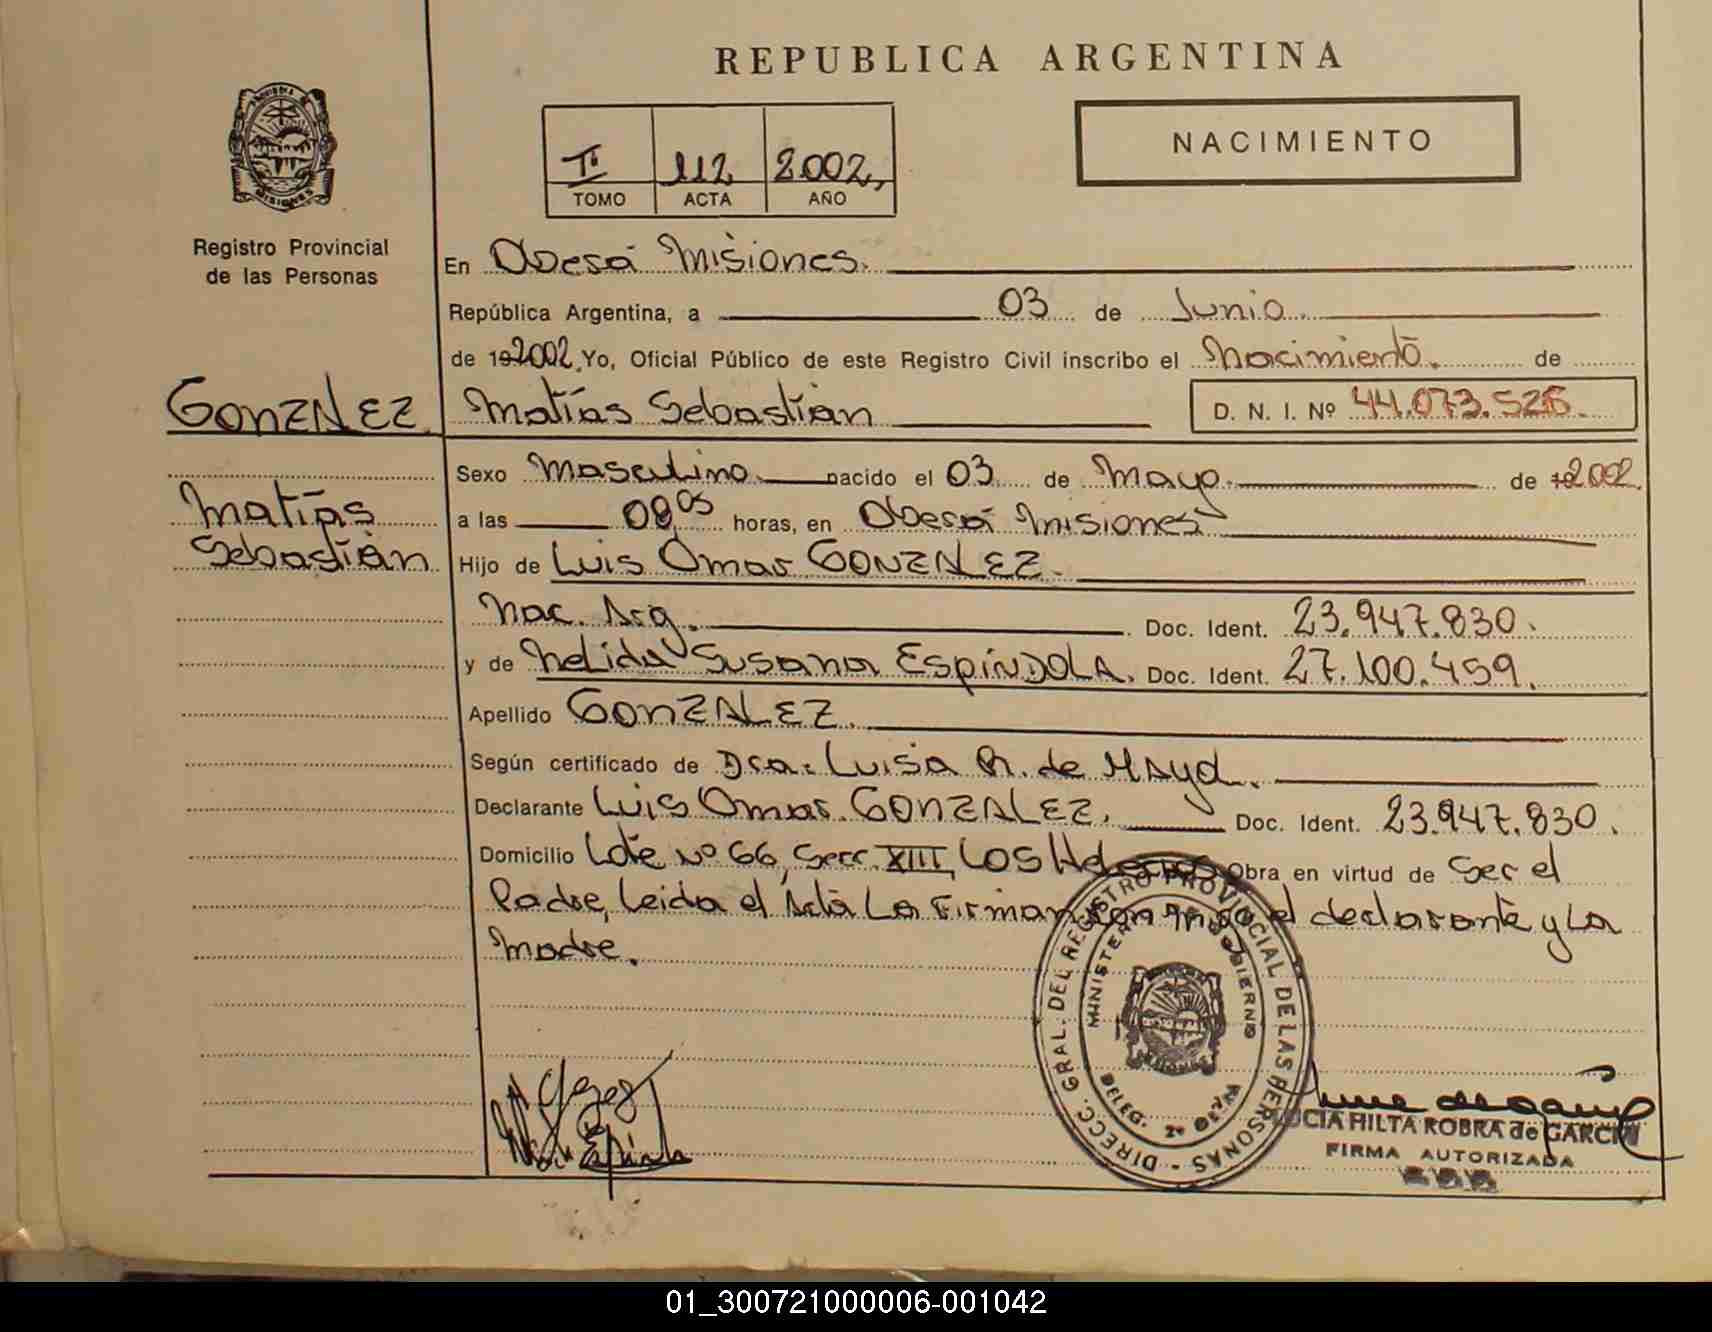 REPUBLICA ARGENTINA
NACIMIENTO
112 2002,
TOMO ACTA AÑO
Registro Provincial
de las Personas
En Oberá Misiones.
República Argentina, a 03 de Junio.
de 19 2002, Yo, Oficial Público de este Registro Civil inscribo el Nacimiento. de
GONZALEZ
Matías Sebastián
D. N. I. Nº 44.073.526.
Matías
Sebastián
Sexo Masculino. nacido el 03 de Mayo. de 19 2002.
a las 08,05 horas, en Oberá Misiones
Hijo de Luis Omar GONZALEZ.
Nac. Arg. Doc. Ident. 23.947.830.
y de Nelida Susana ESPINDOLA. Doc. Ident. 27.100.459.
Apellido GONZALEZ.
Según certificado de Dra. Luisa R. de Mayd.
Declarante Luis Omar GONZALEZ. Doc. Ident. 23.947.830.
Domicilio Lote Nº 66, Secc. XIII, Los Helechos Obra en virtud de Ser el
Padre, Leida el Acta La Firman con migo el declarante y La
Madre.
DIRECC. GRAL. DEL REGISTRO PROVINCIAL DE LAS PERSONAS
MINISTERIO DE GOBIERNO
DELEG. 2ª OBERA
MISIONES
LUCIA HILTA ROBRA de GARCIA
FIRMA AUTORIZADA
01_300721000006-001042